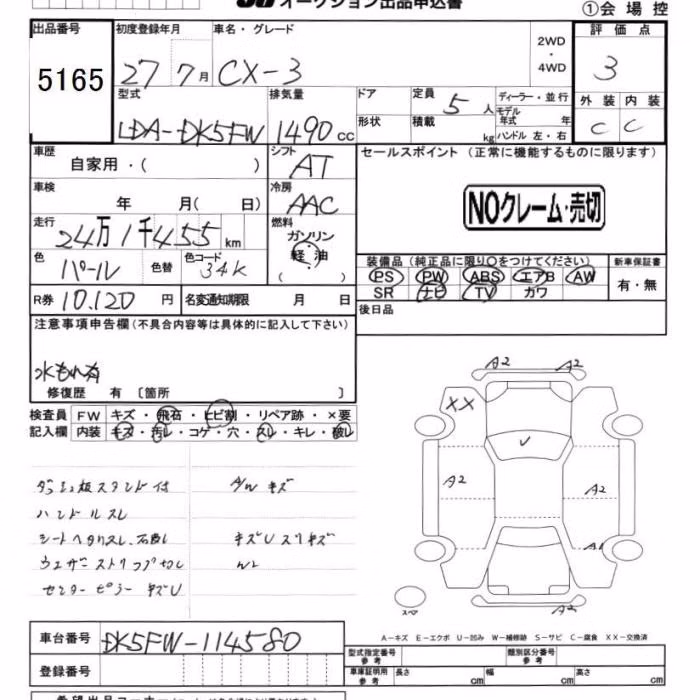 オークション出品申込書
①会場控
出品番号 初度登録年月 車名・グレード 2WD・4WD 評価点
5165 27 7月 CX-3 3
型式 排気量 ドア 定員 5人 ディーラー・並行 外装 内装
LDA-DK5FW 1490cc 形状 積載 kg モデル年式 年 ハンドル 左・右 C C
車歴 シフト セールスポイント (正常に機能するものに限ります)
自家用・( ) AT
車検 冷房
年 月( 日) AAC NOクレーム・売切
走行 燃料
24万1千455km ガソリン
軽油
( )
色 パール 色替 色コード 34K
装備品(純正品に限り○をつけてください) 新車保証書
PS PW ABS エアB AW 有・無
SR ナビ TV カワ
R券 10,120円 名変通知期限 月 日
後日品
注意事項申告欄(不具合内容等は具体的に記入して下さい)
水もれ有
修復歴 有〔箇所 〕
検査員 FW キズ・飛石・ヒビ割・リペア跡・×要
記入欄 内装 キズ・汚レ・コゲ・穴・スレ・キレ・破レ
ダッシュ板スタンド付 A/W キズ
ハンドルスレ
シートヘタリスレ、
キズUスリキズ
ウェザーストリップ切レ
センターピラー キズU
A2 A2
XX
U
A2 A2
A1
A2
スペ
A−キズ E−エクボ U−凹み W−補修跡 S−サビ C−腐食 XX−交換済
車台番号 DK5FW-114580
登録番号
型式指定番号 参考 類別区分番号 参考
車庫証明用 参考 長さ cm 幅 cm 高さ cm
希望出品コーナー